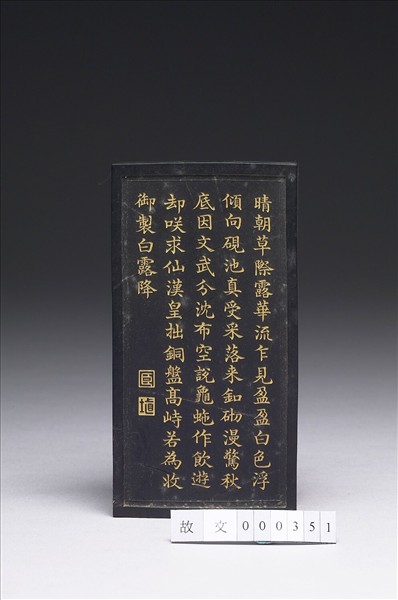 晴朝草際露華流乍見盈盈白色浮
傾向硯池真受采落来釦砌漫驚秋
底因文武分沈布空説龜虵作飲遊
却咲求仙漢皇拙銅盤髙峙若為收
御製白露降
臣
故文000351